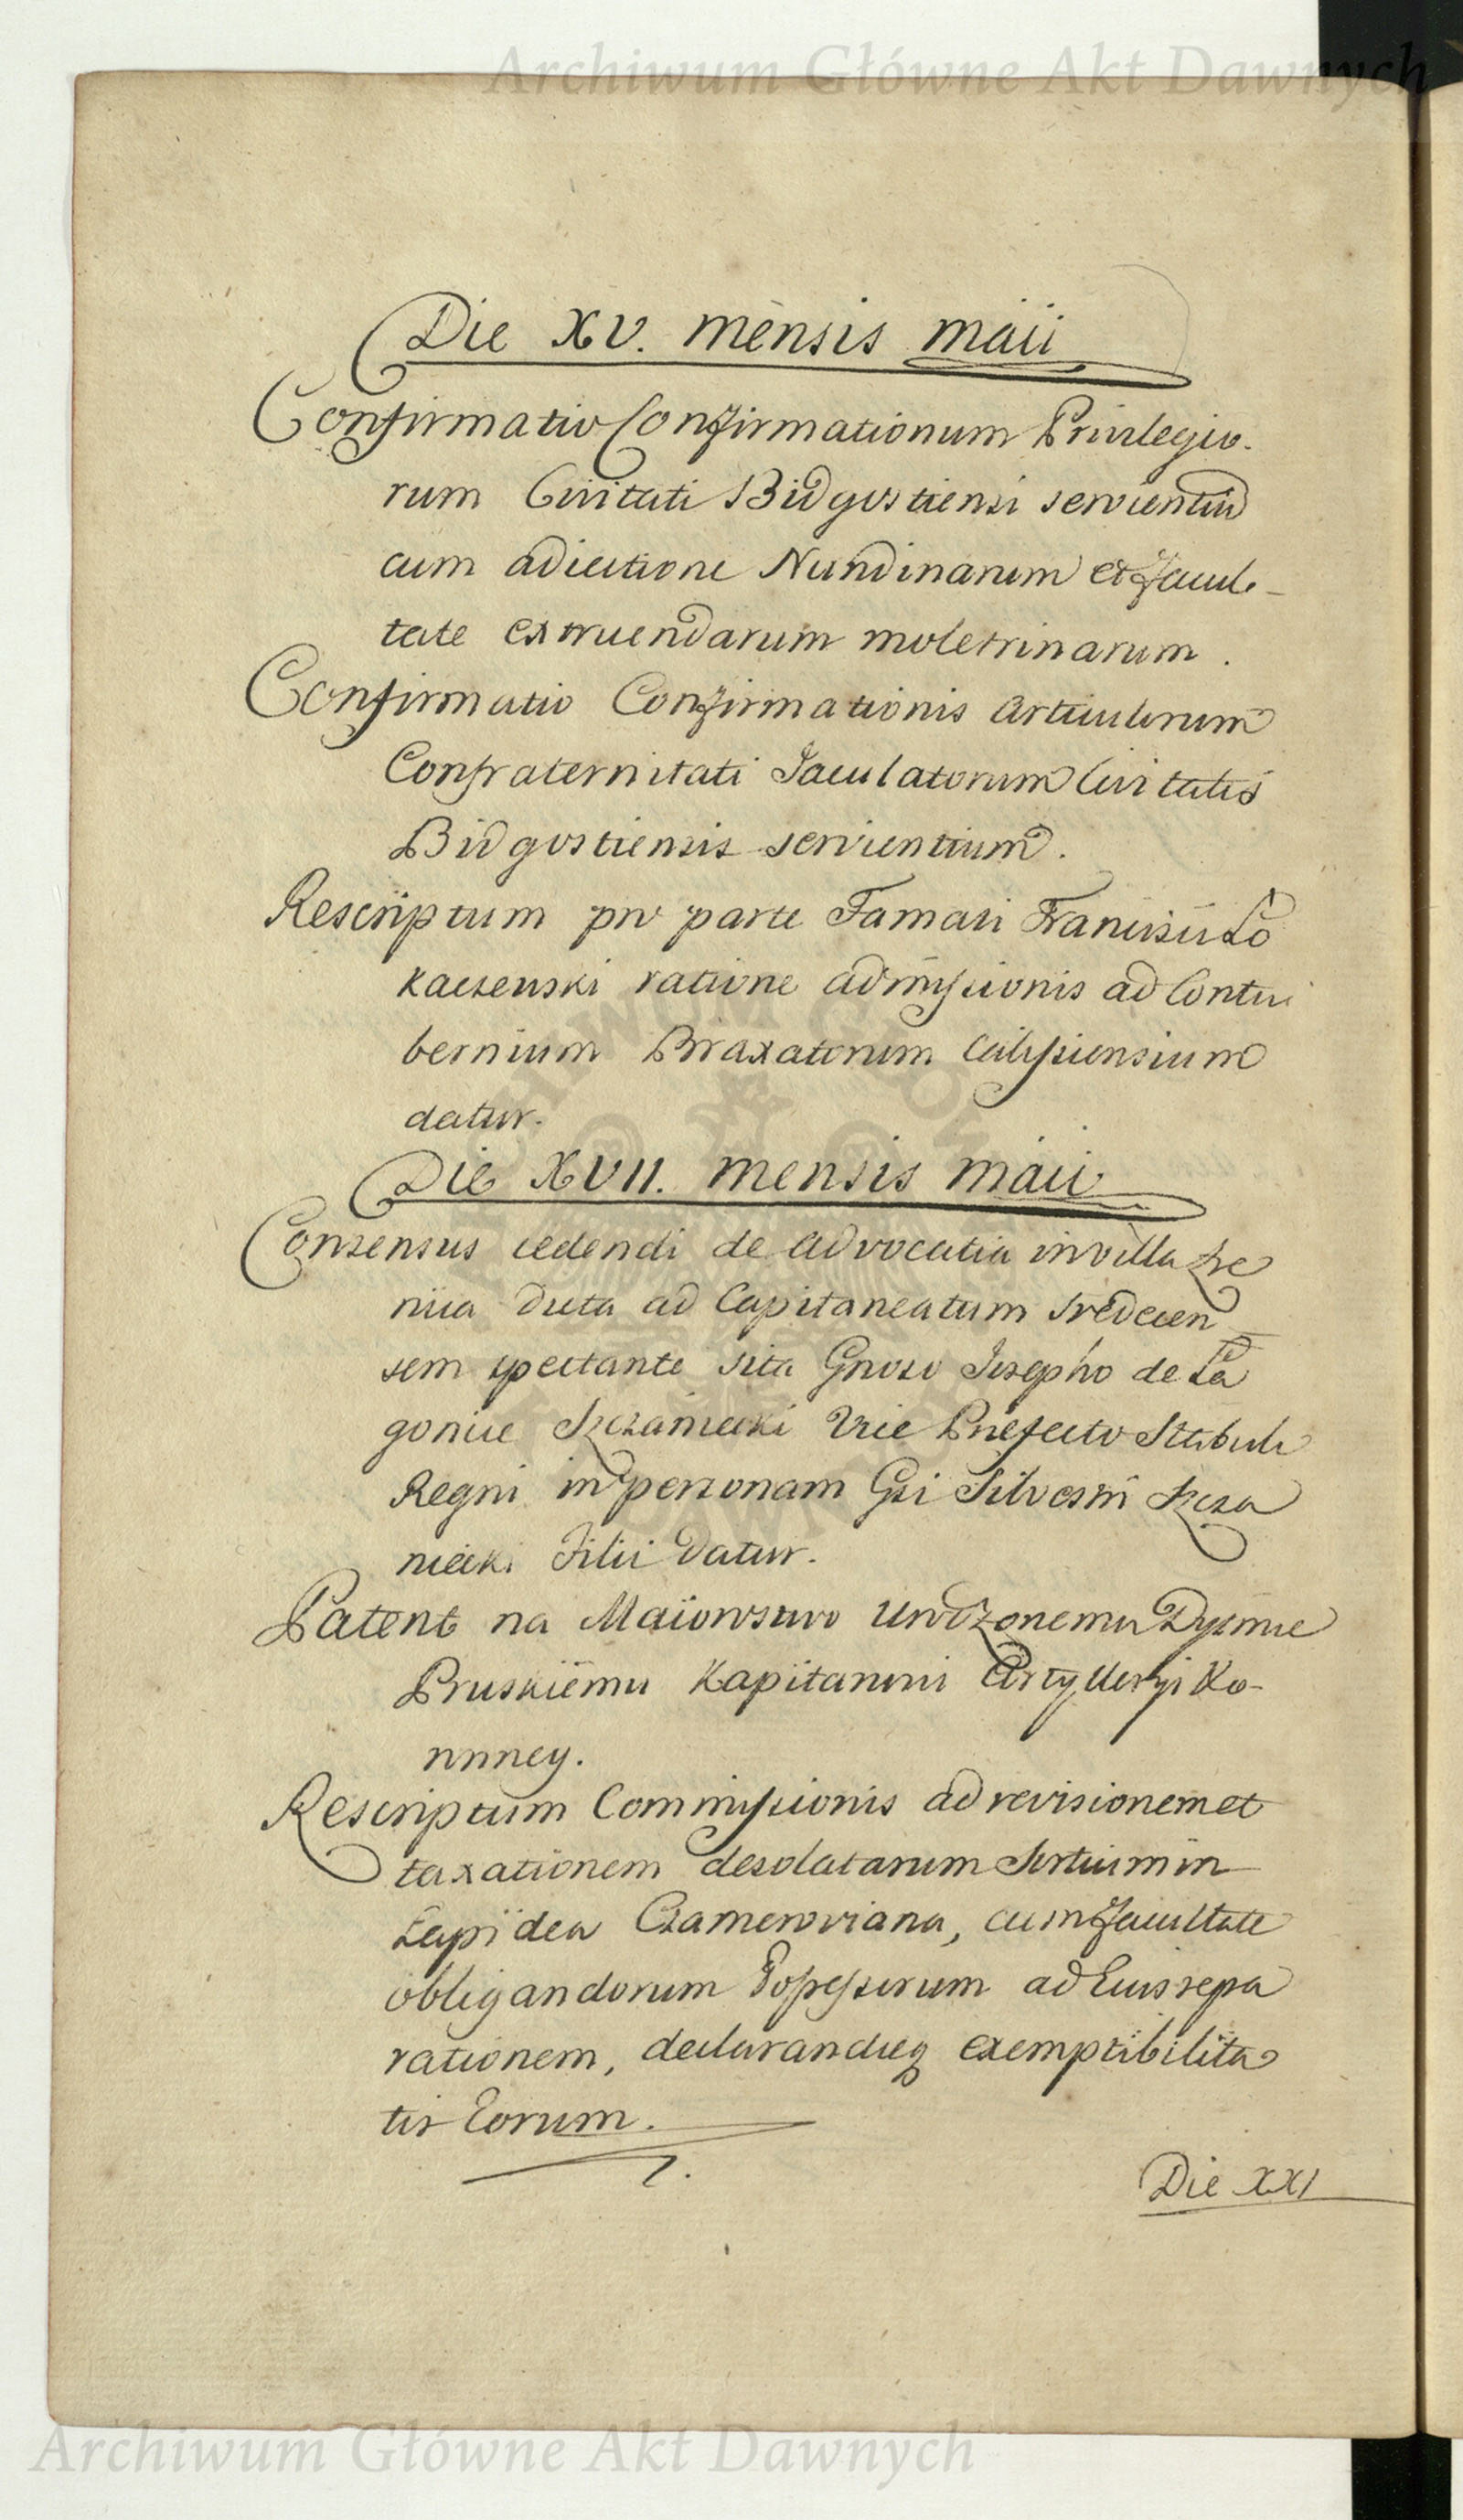 Archiwum Główne Akt Dawnych
Die XV. mensis maii
Confirmatio Confirmationum Privilegio-
rum Civitati Bidgostiensi servientiu
cum adiectione Nundinarum et facul-
tate extruendarum moletrinarum.
Confirmatio Confirmationis Articulorum
Confraternitati Jaculatorum Civitatis
Bidgostiensis servientium.
Rescriptum pro parte Famati Francisci Lo
kaczewski ratione admissionis ad Contu
bernium Braxatorum Calissiensium
datur.
Die XVII. mensis maii
Consensus cedendi de advocatia in villa
dicta ad Capitaneatum Sredecen
sem spectante sita Gnoso Josepho de Ła
gonice Szczaniecki Vice Præfecto Stabuli
Regni in personam Gsi Silvestri Szcza
niecki Filii datur.
Patent na Maiorstwo Urodzonemu Dyzmie
Pruskiemu Kapitanowi Artylleryi Ko-
ronney.
Rescriptum Commissionis ad revisionem et
taxationem desolatarum Sortium in
Lapidea Czamerowiana, cum facultate
obligandorum Possessorum ad Eius repa
rationem, declarandæq exemptibilita
tis Eorum.
Die XXI
Archiwum Główne Akt Dawnych